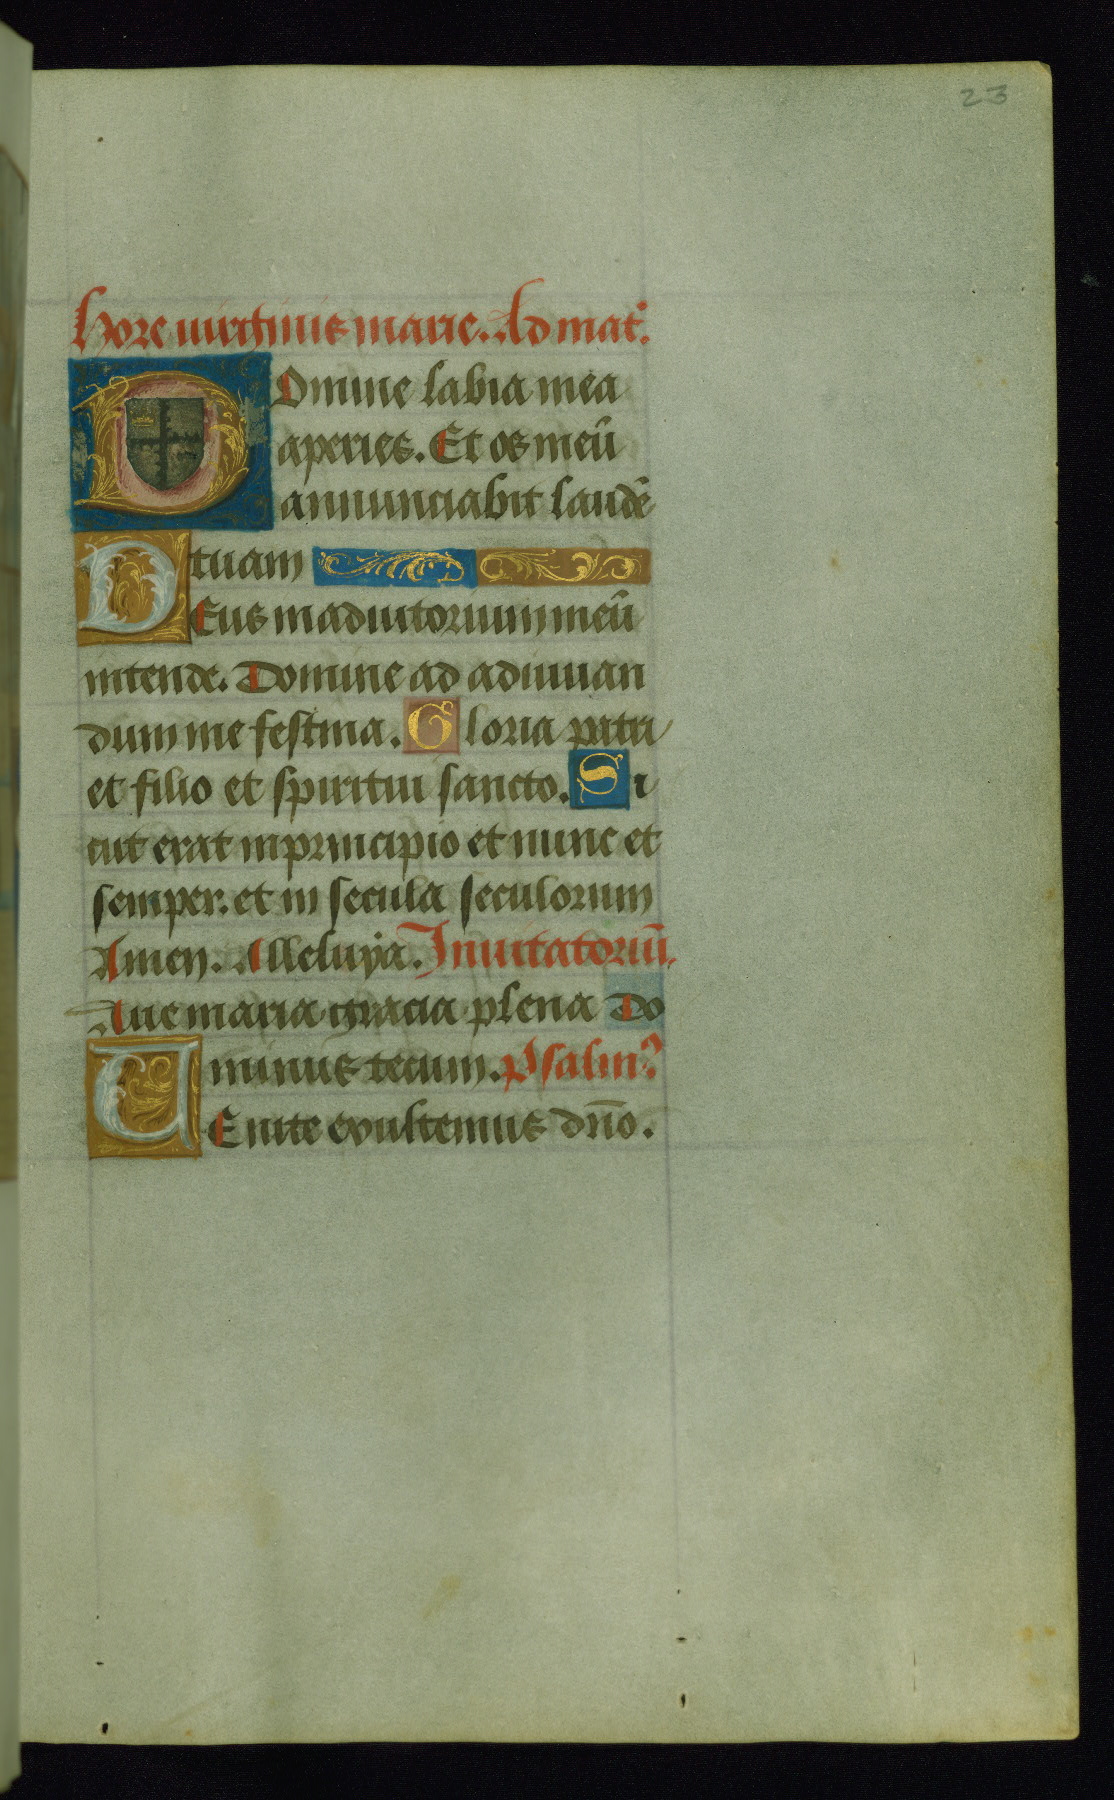 23
Hore uirginis marie. Ad mat.
Domine labia mea
aperies. Et os meū
annunciabit laudē
tuam
Deus in adiutorium meū
intende. Domine ad adiuuan
dum me festina. Gloria patri
et filio et spiritui sancto. Si
cut erat in principio et nunc et
semper. et in secula seculorum
Amen. Alleluya. Inuitatoriū.
Aue maria gracia plena Do
minus tecum. Psalm9
Uenite exultemus dn̄o.